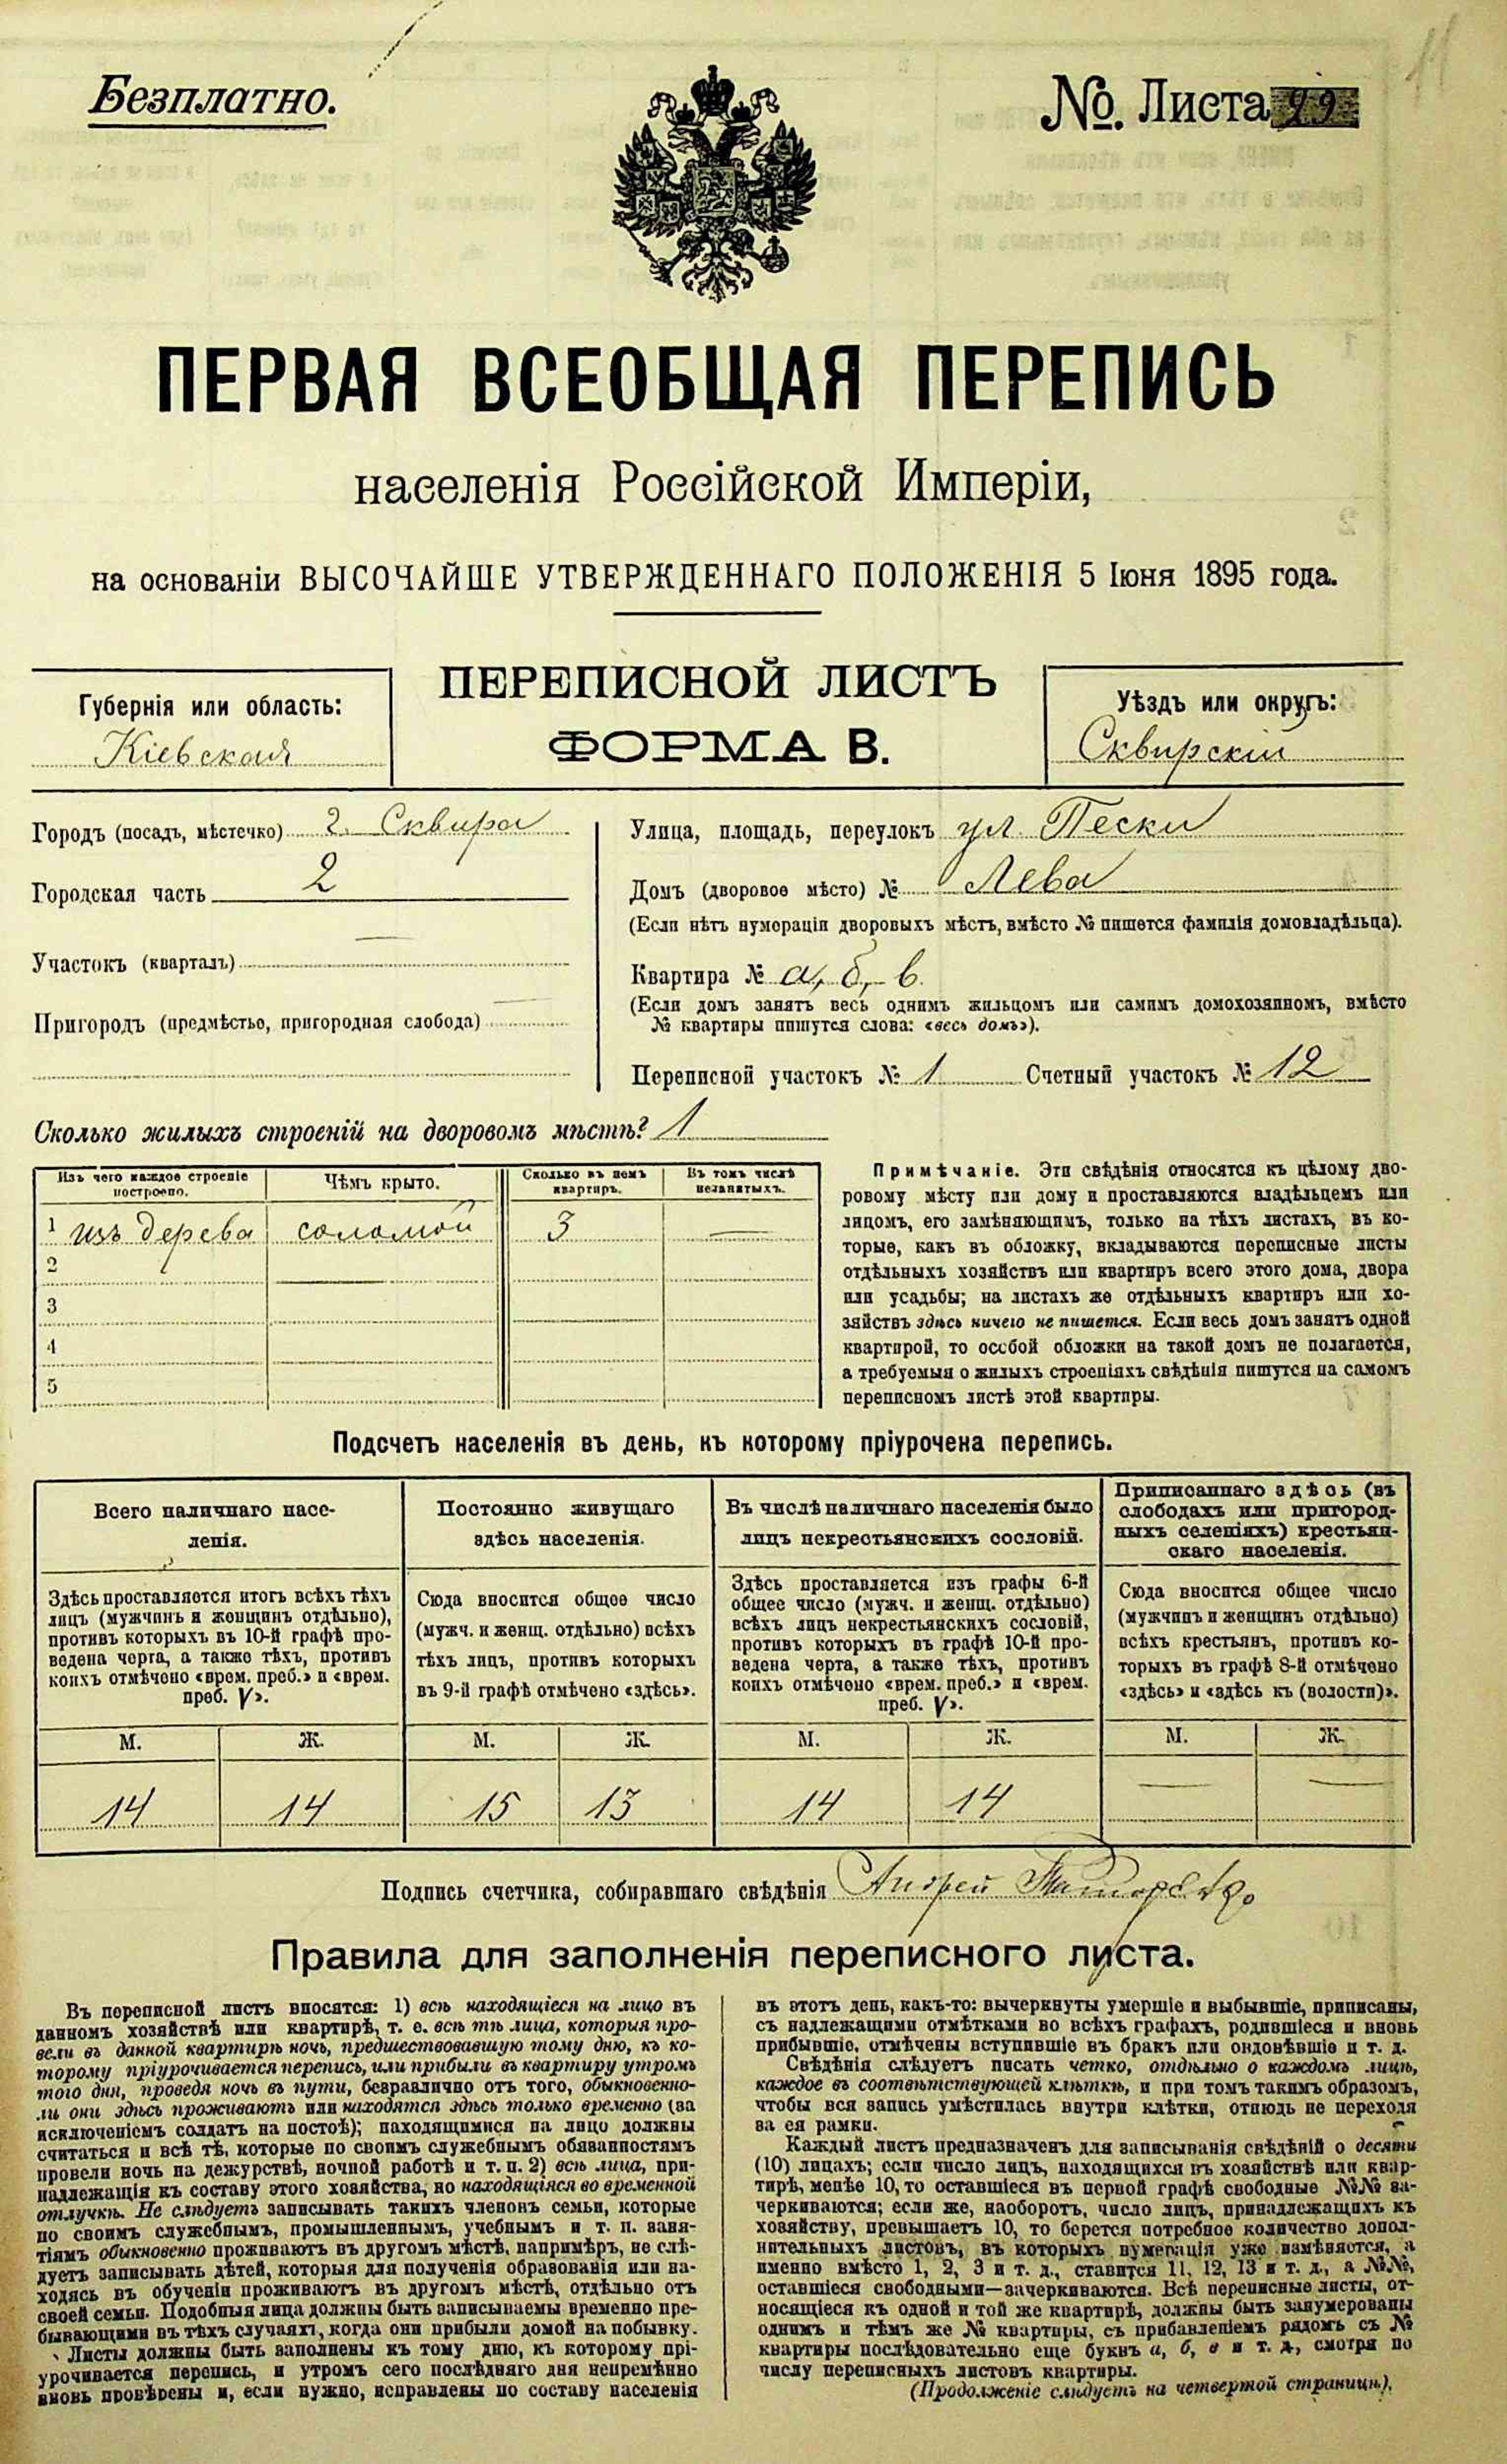 11
Безплатно.
№. Листа 99
ПЕРВАЯ ВСЕОБЩАЯ ПЕРЕПИСЬ
населенія Россійской Имперіи,
на основаніи ВЫСОЧАЙШЕ УТВЕРЖДЕННАГО ПОЛОЖЕНІЯ 5 Іюня 1895 года.
Губернія или область:
Кіевская
ПЕРЕПИСНОЙ ЛИСТЪ
ФОРМА В.
Уѣздъ или округъ:
Сквирскій
Городъ (посадъ, мѣстечко) г. Сквира
Городская часть 2
Участокъ (кварталъ) —
Пригородъ (предмѣстье, пригородная слобода) —
Улица, площадь, переулокъ ул. Пески
Домъ (дворовое мѣсто) № Лева
(Если нѣтъ нумераціи дворовыхъ мѣстъ, вмѣсто № пишется фамилія домовладѣльца).
Квартира № а, б, в
(Если домъ занятъ весь однимъ жильцомъ или самимъ домохозяиномъ, вмѣсто
№ квартиры пишутся слова: «весь домъ»).
Переписной участокъ № 1 Счетный участокъ № 12
Сколько жилыхъ строеній на дворовомъ мѣстѣ? 1
Изъ чего каждое строеніе
построено.
Чѣмъ крыто.
Сколько въ немъ
квартиръ.
Въ томъ числѣ
незанятыхъ.
1 изъ дерева соломой 3 —
2
3
4
5
Примѣчаніе. Эти свѣдѣнія относятся къ цѣлому дво-
ровому мѣсту или дому и проставляются владѣльцемъ или
лицомъ, его замѣняющимъ, только на тѣхъ листахъ, въ ко-
торые, какъ въ обложку, вкладываются переписные листы
отдѣльныхъ хозяйствъ или квартиръ всего этого дома, двора
или усадьбы; на листахъ же отдѣльныхъ квартиръ или хо-
зяйствъ здѣсь ничего не пишется. Если весь домъ занятъ одной
квартирой, то особой обложки на такой домъ не полагается,
а требуемыя о жилыхъ строеніяхъ свѣдѣнія пишутся на самомъ
переписномъ листѣ этой квартиры.
Подсчетъ населенія въ день, къ которому пріурочена перепись.
Всего наличнаго насе-
ленія.
Здѣсь проставляется итогъ всѣхъ тѣхъ
лицъ (мужчинъ и женщинъ отдѣльно),
противъ которыхъ въ 10-й графѣ про-
ведена черта, а также тѣхъ, противъ
коихъ отмѣчено «врем. преб.» и «врем.
преб. V».
Постоянно живущаго
здѣсь населенія.
Сюда вносится общее число
(мужч. и женщ. отдѣльно) всѣхъ
тѣхъ лицъ, противъ которыхъ
въ 9-й графѣ отмѣчено «здѣсь».
Въ числѣ наличнаго населенія было
лицъ некрестьянскихъ сословій.
Здѣсь проставляется изъ графы 6-й
общее число (мужч. и женщ. отдѣльно)
всѣхъ лицъ некрестьянскихъ сословій,
противъ которыхъ въ графѣ 10-й про-
ведена черта, а также тѣхъ, противъ
коихъ отмѣчено «врем. преб.» и «врем.
преб. V».
Приписаннаго здѣсь (въ
слободахъ или пригород-
ныхъ селеніяхъ) крестьян-
скаго населенія.
Сюда вносится общее число
(мужчинъ и женщинъ отдѣльно)
всѣхъ крестьянъ, противъ ко-
торыхъ въ графѣ 8-й отмѣчено
«здѣсь» и «здѣсь къ (волости)».
М. Ж. М. Ж. М. Ж. М. Ж.
14 14 15 13 14 14 — —
Подпись счетчика, собиравшаго свѣдѣнія Андрей
Правила для заполненія переписного листа.
Въ переписной листъ вносятся: 1) всѣ находящіеся на лицо въ
данномъ хозяйствѣ или квартирѣ, т. е. всѣ тѣ лица, которыя про-
вели въ данной квартирѣ ночь, предшествовавшую тому дню, къ ко-
торому пріурочивается перепись, или прибыли въ квартиру утромъ
того дня, проведя ночь въ пути, безразлично отъ того, обыкновенно-
ли они здѣсь проживаютъ или находятся здѣсь только временно (за
исключеніемъ солдатъ на постоѣ); находящимися на лицо должны
считаться и всѣ тѣ, которые по своимъ служебнымъ обязанностямъ
провели ночь на дежурствѣ, ночной работѣ и т. п. 2) всѣ лица, при-
надлежащія къ составу этого хозяйства, но находящіяся во временной
отлучкѣ. Не слѣдуетъ записывать такихъ членовъ семьи, которые
по своимъ служебнымъ, промышленнымъ, учебнымъ и т. п. заня-
тіямъ обыкновенно проживаютъ въ другомъ мѣстѣ, напримѣръ, не слѣ-
дуетъ записывать дѣтей, которыя для полученія образованія или на-
ходясь въ обученіи проживаютъ въ другомъ мѣстѣ, отдѣльно отъ
своей семьи. Подобныя лица должны быть записываемы временно пре-
бывающими въ тѣхъ случаяхъ, когда они прибыли домой на побывку.
Листы должны быть заполнены къ тому дню, къ которому прі-
урочивается перепись, и утромъ сего послѣдняго дня непремѣнно
вновь провѣрены и, если нужно, исправлены по составу населенія
въ этотъ день, какъ-то: вычеркнуты умершіе и выбывшіе, приписаны,
съ надлежащими отмѣтками во всѣхъ графахъ, родившіеся и вновь
прибывшіе, отмѣчены вступившіе въ бракъ или овдовѣвшіе и т. д.
Свѣдѣнія слѣдуетъ писать четко, отдѣльно о каждомъ лицѣ,
каждое въ соотвѣтствующей клѣткѣ, и при томъ такимъ образомъ,
чтобы вся запись умѣстилась внутри клѣтки, отнюдь не переходя
за ея рамки.
Каждый листъ предназначенъ для записыванія свѣдѣній о десяти
(10) лицахъ; если число лицъ, находящихся въ хозяйствѣ или квар-
тирѣ, менѣе 10, то оставшіеся въ первой графѣ свободные №№ за-
черкиваются; если же, наоборотъ, число лицъ, принадлежащихъ къ
хозяйству, превышаетъ 10, то берется потребное количество допол-
нительныхъ листовъ, въ которыхъ нумерація уже измѣняется, а
именно вмѣсто 1, 2, 3 и т. д., ставится 11, 12, 13 и т. д., а №№,
оставшіеся свободными—зачеркиваются. Всѣ переписные листы, от-
носящіеся къ одной и той же квартирѣ, должны быть занумерованы
однимъ и тѣмъ же № квартиры, съ прибавленіемъ рядомъ съ №
квартиры послѣдовательно еще буквъ а, б, в и т. д., смотря по
числу переписныхъ листовъ квартиры.
(Продолженіе слѣдуетъ на четвертой страницѣ).